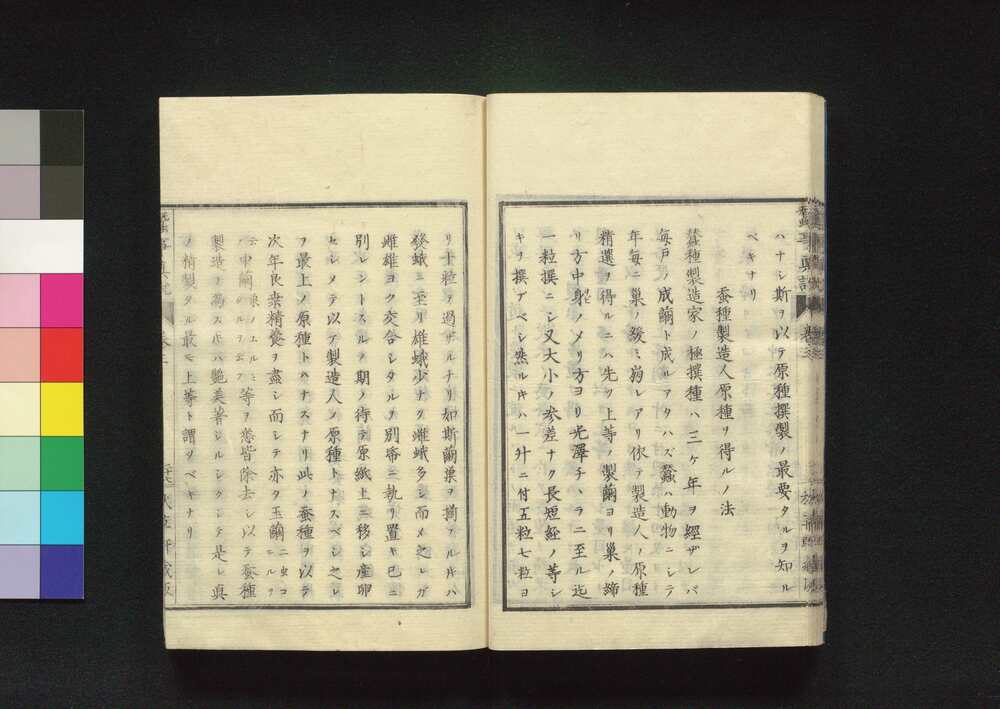 ハナシ斯ヲ以テ原種撰製ノ最要タルヲ知ル
ベキナリ
蚕種製造人原種ヲ得ルノ法
蚕種製造家ノ極撰種ハ三ケ年ヲ經ザレバ
毎戸ノ成繭ト成ルアタハズ蠶ハ動物ニシテ
年毎ニ巣ノ發ミ弱レアリ依テ製造人ノ原種
精選ヲ得ルニハ先ツ上等ノ製繭ヨリ巣ノ締
リ方中身ノメリ方ヨリ光澤チヾラニ至ル迄
一粒撰ニシ又大小ノ参差ナク長短經ノ等シ
キヲ撰アベシ然ルキハ一升ニ付五粒七粒ヨ
リ十粒ヲ過ザルナリ如斯繭巣ヲ撰アルキハ
發蛾ニ至リ雄蛾少ナク雌蛾多シ而メ之レガ
雌雄ヨク交合シタルヲ別席ニ執リ置キ已ニ
別レントスルノ期ヲ待テ原紙上ニ移シ産卵
セシメテ以テ製造人ノ原種トナスベシ之レ
ヲ最上ノ原種トハナスナリ此ノ蚕種ヲ以テ
次年良桒精養ヲ盡シ而シテ亦タ玉繭
中繭 等ヲ悉皆除去シ以テ蚕種
製造ヲ為スキハ艶美著シルシクシテ是レ真
ノ精製タル最モ上等ト謂ツベキナリ